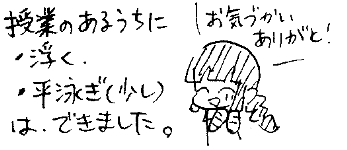 授業のあるうちに
・浮く.
・平泳ぎ(少し)
は.できました。
お気づかい
ありがと!